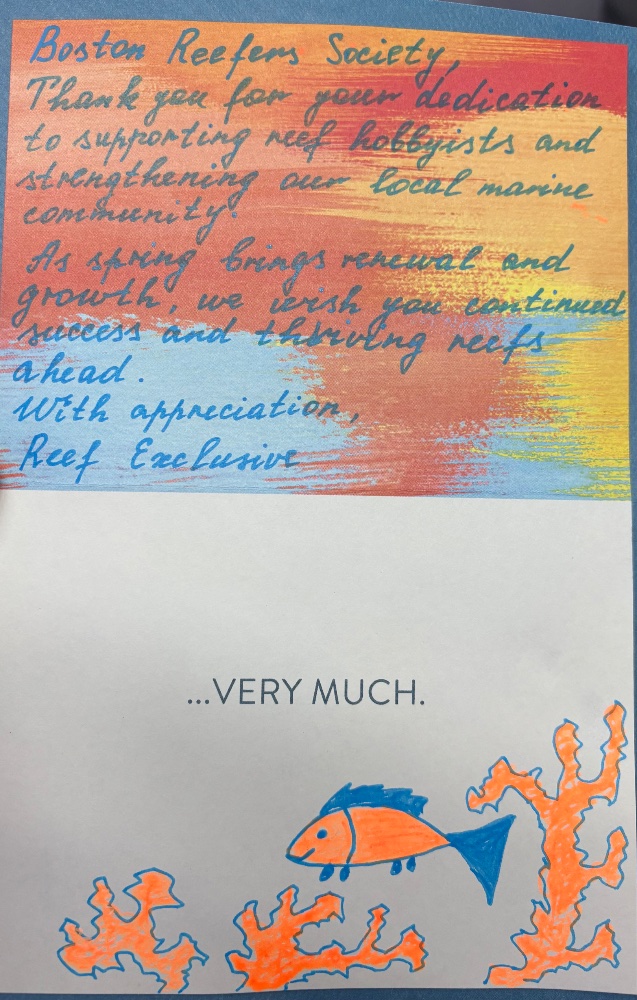 Boston Reefers Society,
Thank you for your dedication
to supporting reef hobbyists and
strengthening our local marine
community.
As spring brings renewal and
growth, we wish you continued
success and thriving reefs
ahead.
With appreciation,
Reef Exclusive
...VERY MUCH.